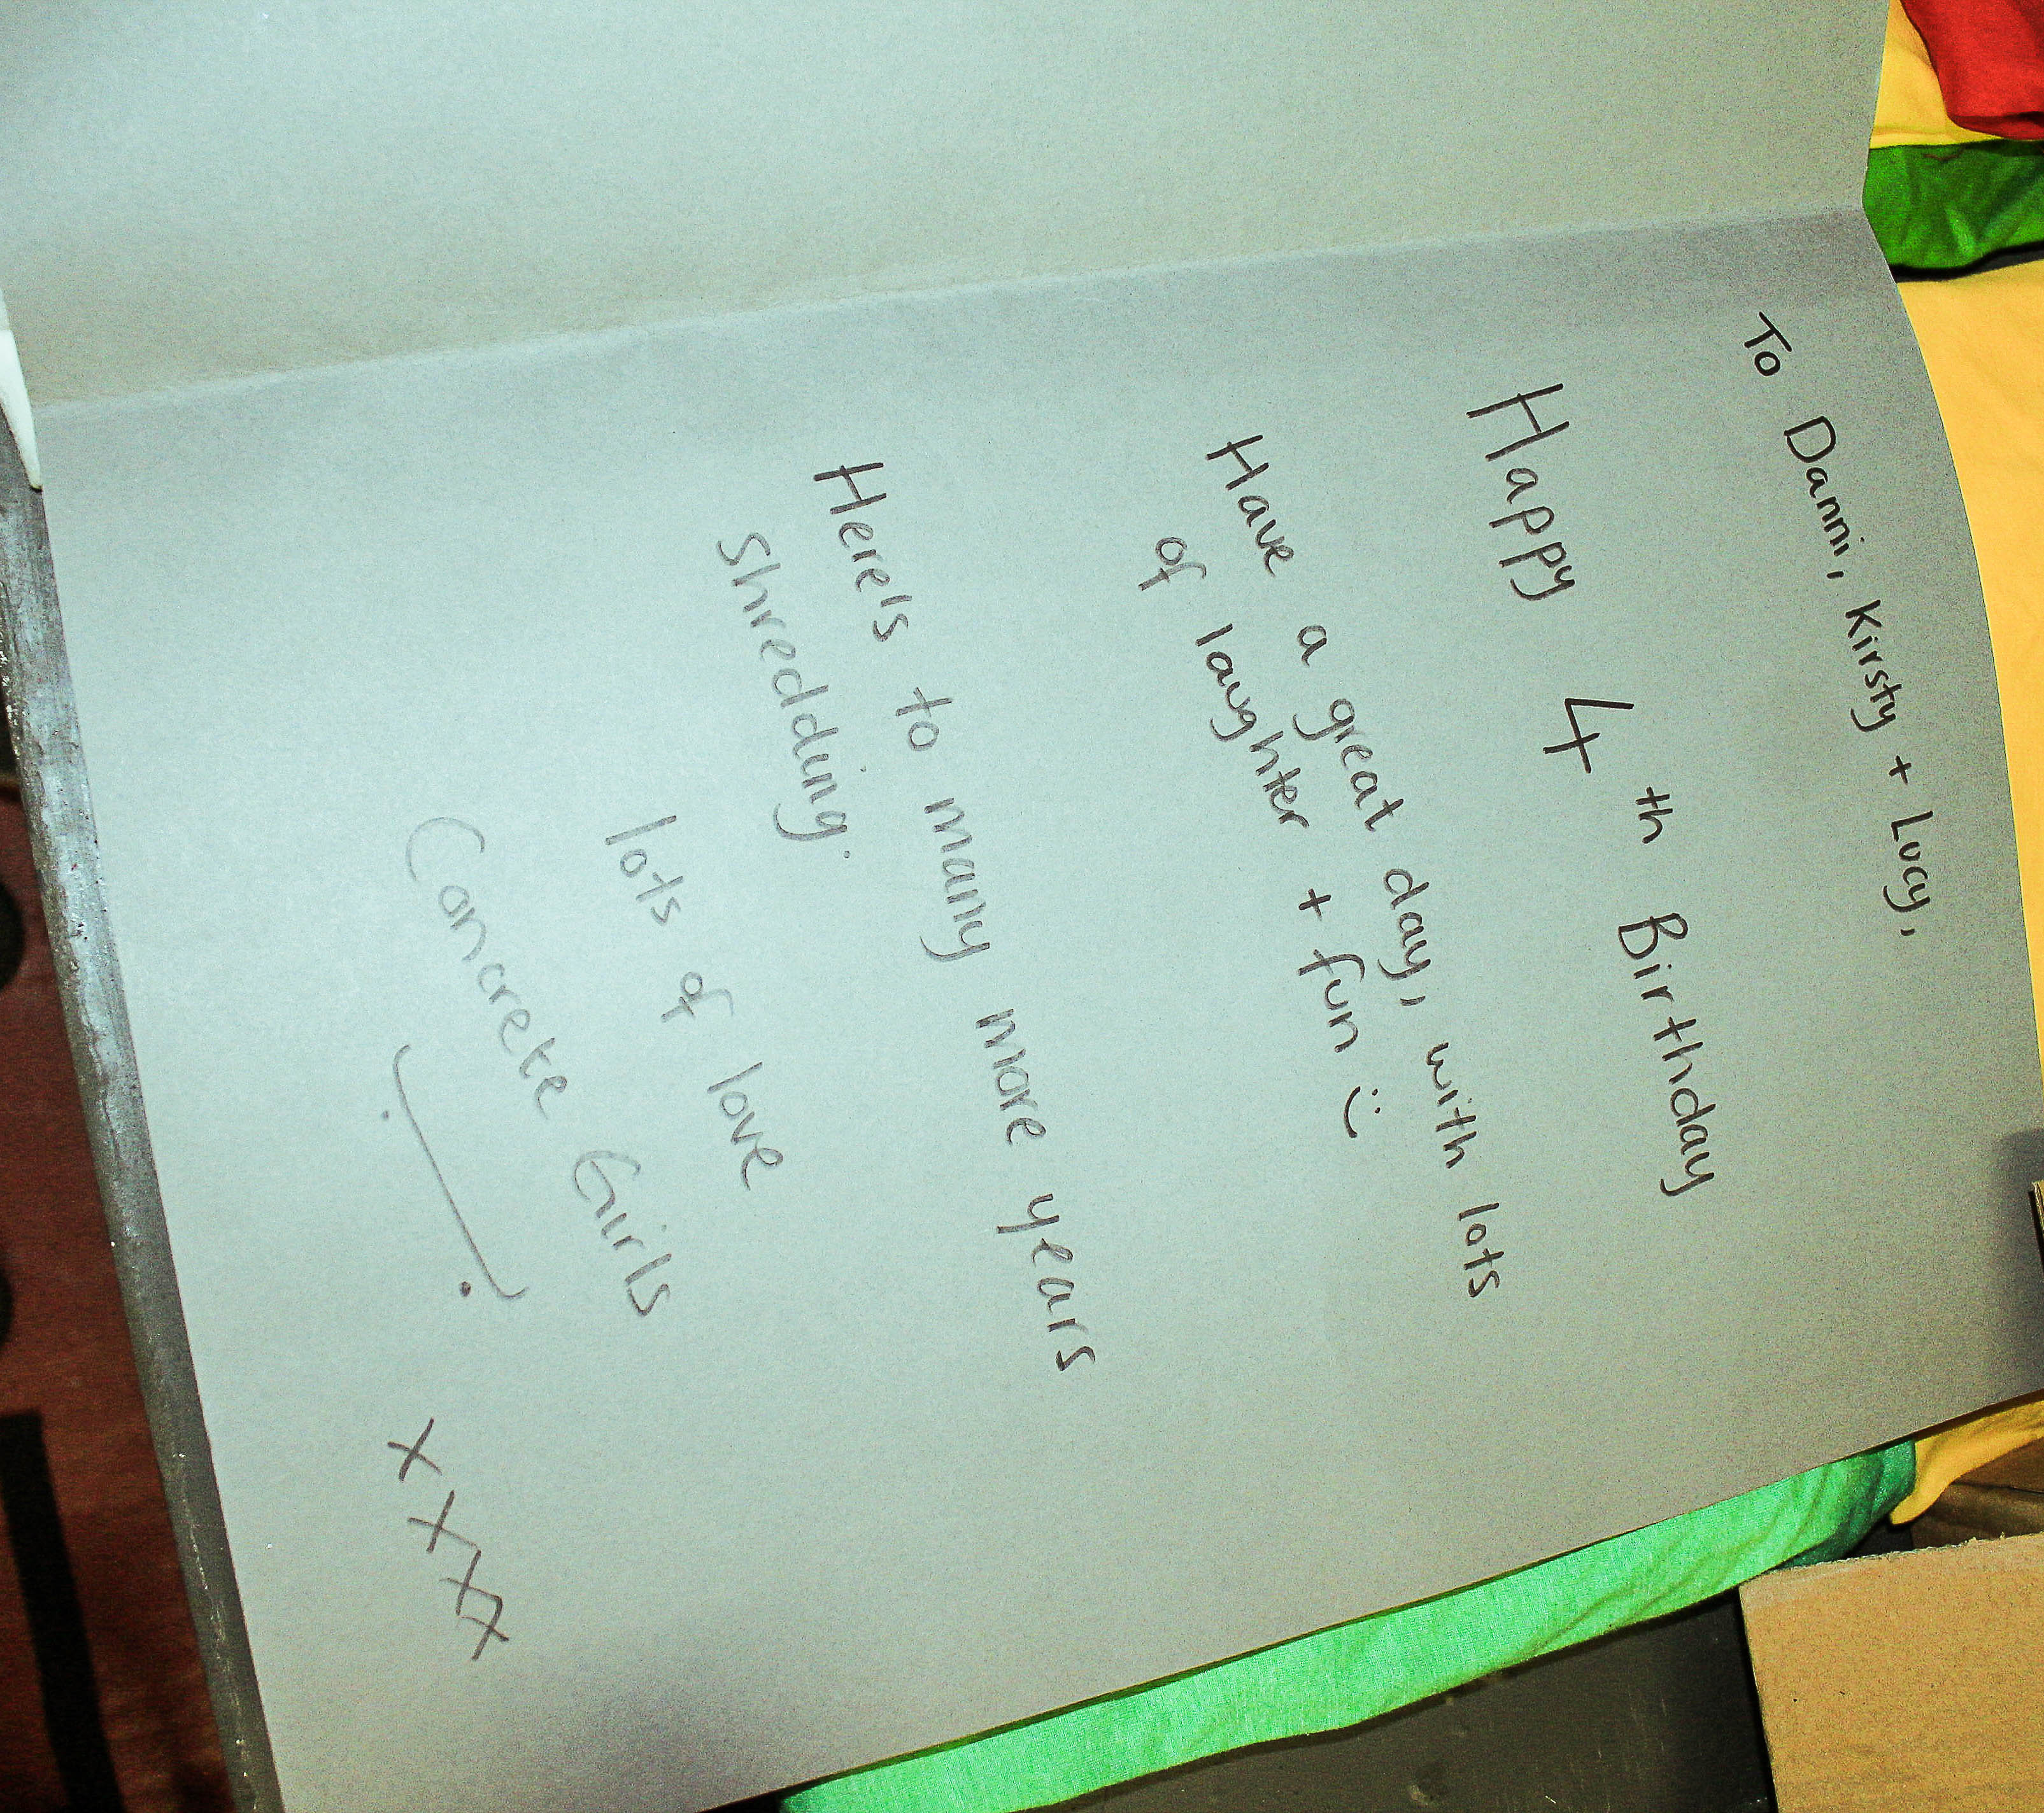 To Danni, Kirsty + Lucy,
Happy 4th Birthday
Have a great day, with lots
of laughter + fun :)
Here's to many more years
shredding.
lots of love
Concrete Girls
xxxx